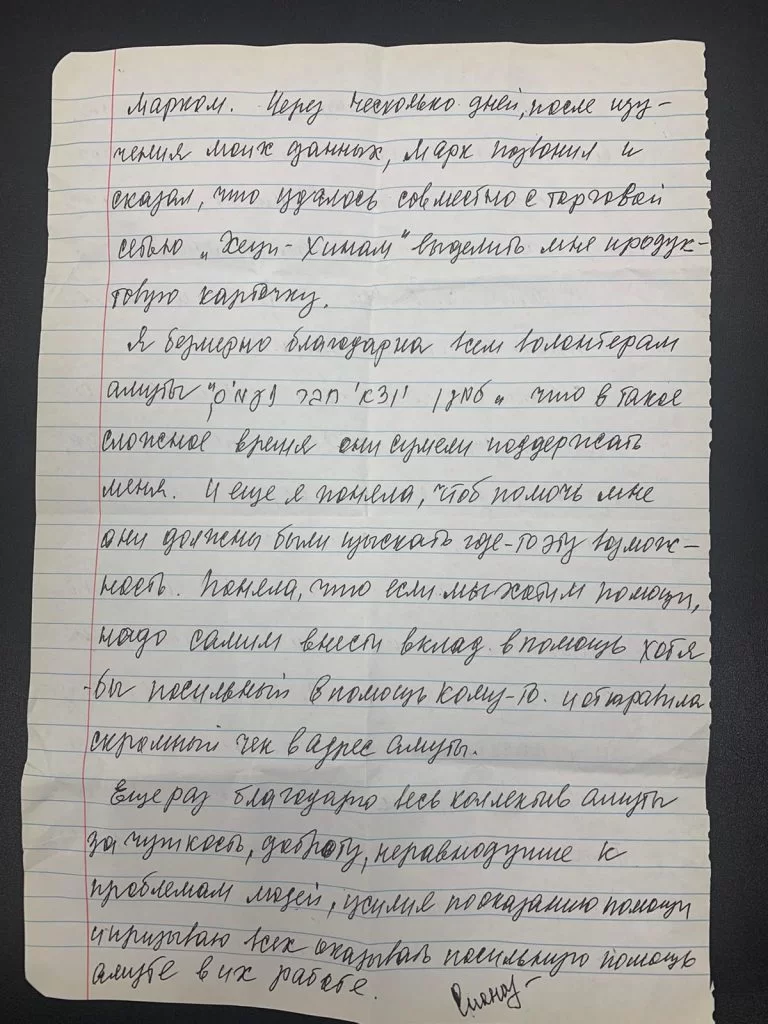 Марком. Через несколько дней, после изу-
чения моих данных, Марк позвонил и
сказал, что удалось совместно с торговой
сетью „Хеци-Хинам" выделить мне продук-
товую карточку.
Я безмерно благодарна всем волонтерам
амуты " что в такое
сложное время они сумели поддержать
меня. И еще я поняла, чтоб помочь мне
они должны были изыскать где-то эту возмож-
ность. Поняла, что если мы хотим помощи,
надо самим внести вклад в помощь хотя
бы посильный в помощь кому-то. и отправила
скромный чек в адрес амуты.
Еще раз благодарю весь коллектив амуты
за чуткость, доброту, неравнодушие к
проблемам людей, усилия по оказанию помощи
и призываю всех оказывать посильную помощь
амуте в их работе.